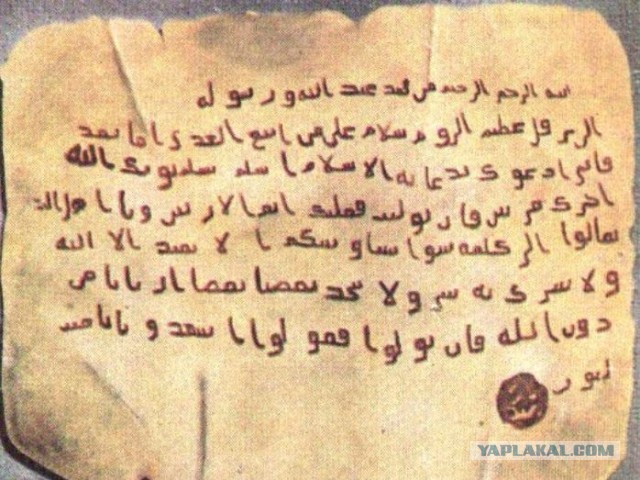 الله الرحمن الرحيم من محمد عبد الله ورسوله
الى هرقل عظيم الروم سلام على من اتبع الهدى اما بعد
فانى ادعوك بدعايه الاسلام اسلم تسلم يوتك الله
اجرك مرتين فان توليت فعليك اثم الاريسين ويا اهل
تعالوا الى كلمه سوا بيننا وبينكم ا لا نعبد الا الله
ولا نشرك به شيا ولا يتخذ بعضنا بعضا اربابا من
دون الله فان تولوا فقولوا اشهدوا بانا مسل
مون
YAPLAKAL.COM